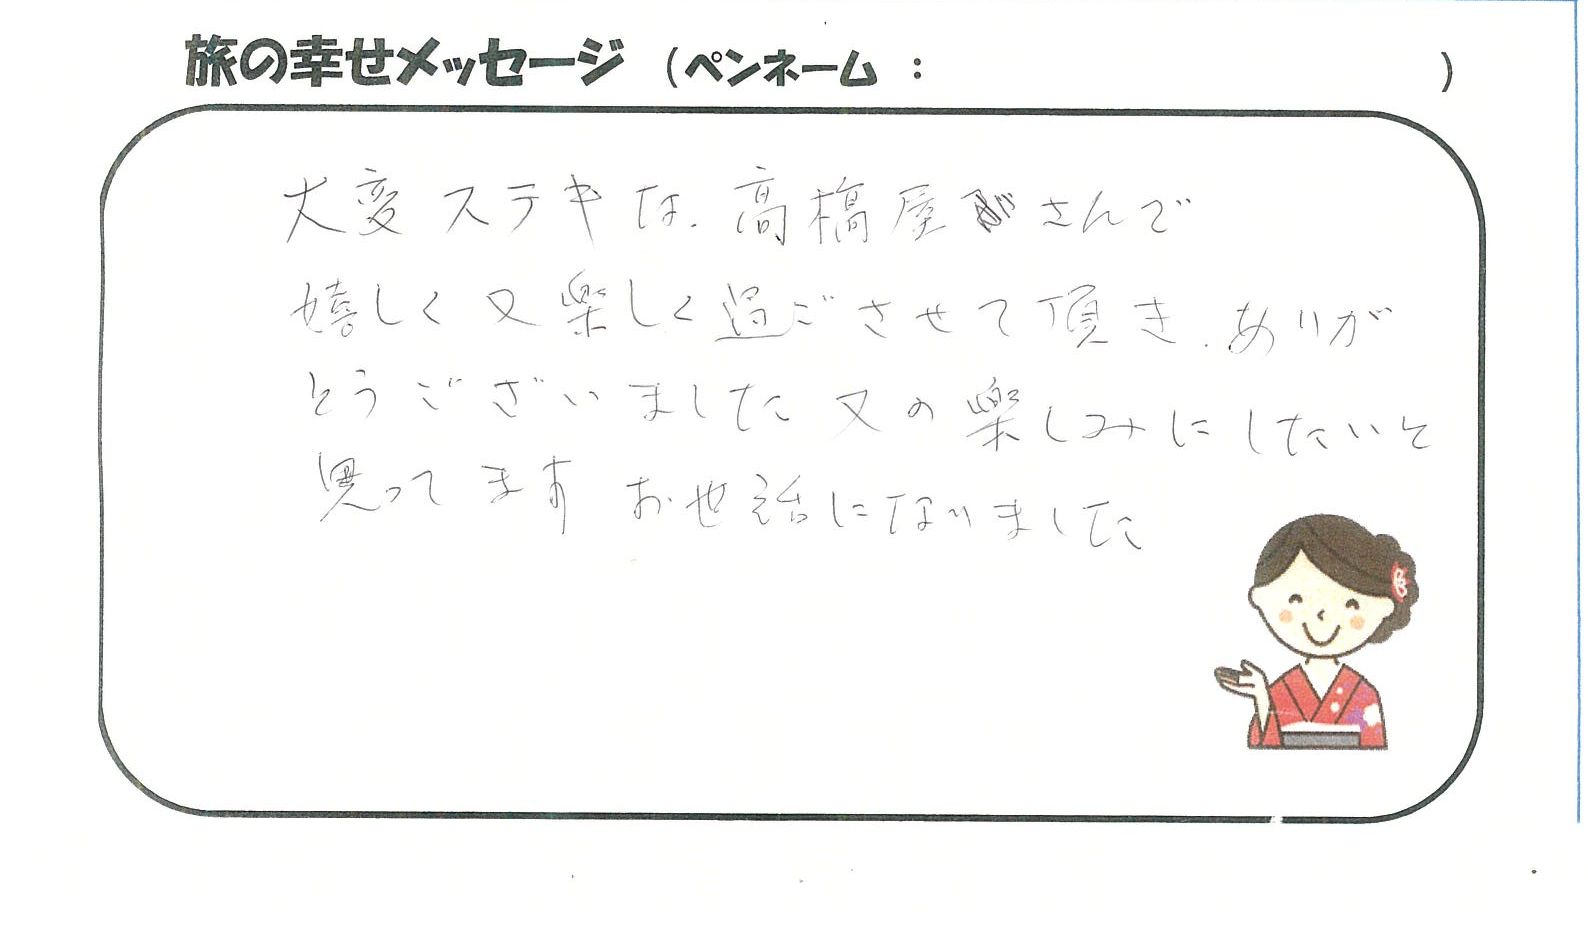 旅の幸せメッセージ （ペンネーム ： ）
大変ステキな、高橋屋さんで
嬉しく又楽しく過ごさせて頂き、ありが
とうございました 又の楽しみにしたいと
思ってます お世話になりました